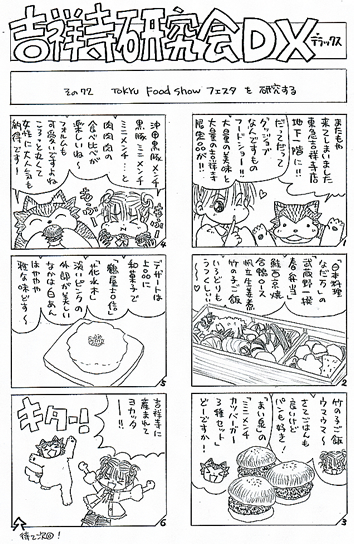 吉祥寺研究会DX
デラックス
その72 TOKYU Food Show フェスタ を 研究する
またもや
来てしまいました
東急吉祥寺店
地下1階に!!
だってだって
グッジョブ
なんですもの
フードショー!!
大量の美味と
大量の吉祥寺
限定品が!!
1
「日本料理
なだ万」の
武蔵野 樹
春弁当
鮭西京焼
合鴨ロース
帆立生姜煮
竹の子ご飯
いろどりも
うつくしい〜
2
竹の子ご飯
ウマウマ〜
さてごはんも
良いけど
パンも好き!
まい泉の
「ミニメンチ
カツバーガー
3種セット」
どーですか!
3
沖田黒豚メンチ
黒豚ミニメンチ
ミニメンチ…と
肉肉肉の
食べ比べが
楽しいね〜
もふー
もふー
フォルムも
可愛いですよね
ころっと丸くて
女性に大人気も
納得です!
4
デザートは
上品に
和菓子で
「鶴屋吉信」
「花水木」
淡いピンクの
外郎が美しい
なかは白あん
はかやか
雅な味どす〜
5
吉祥寺に
産まれて
ヨカッタ
〜!!
キター!!
6
待て次回!